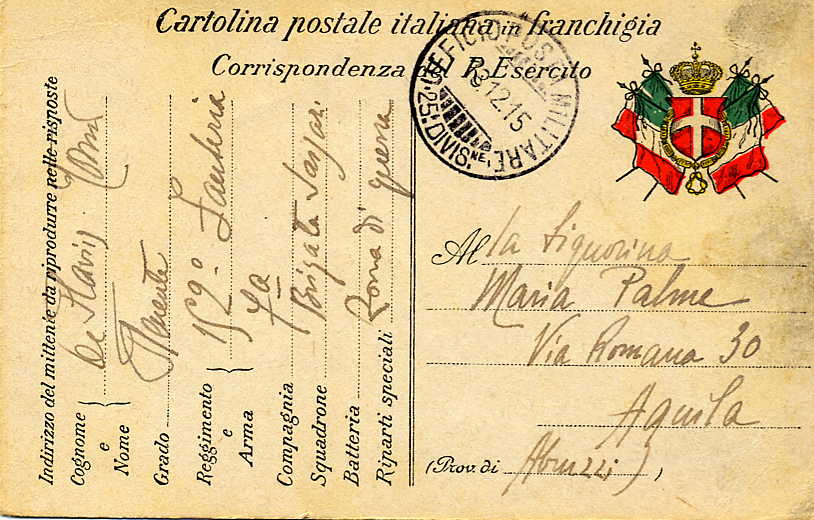 Cartolina postale italiana in franchigia
Corrispondenza del R. Esercito
UFFICIO POSTA MILITARE
25ª DIVIS.NE
12.15
Indirizzo del mittente da riprodurre nelle risposte
Cognome e Nome } De Flaviis
Grado Tenente
Reggimento e Arma } 152° Fanteria
Compagnia 7a
Squadrone Brigata Sassari
Batteria
Riparti speciali Zona di guerra
Al la Signorina
Maria Palme
Via Romana 30
Aquila
(Prov. di Abruzzi),